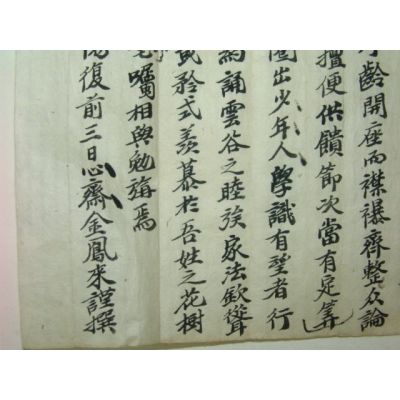 齡開座而襟裾齊整众論
擅便供饋節次當有定筭
圈出少年人學識有望者行
約誦雲谷之睦族家法歆聳
貳矜式羡慕於吾姓之花樹
囑相與勉旃焉
復前三日心齋金鳳來謹撰